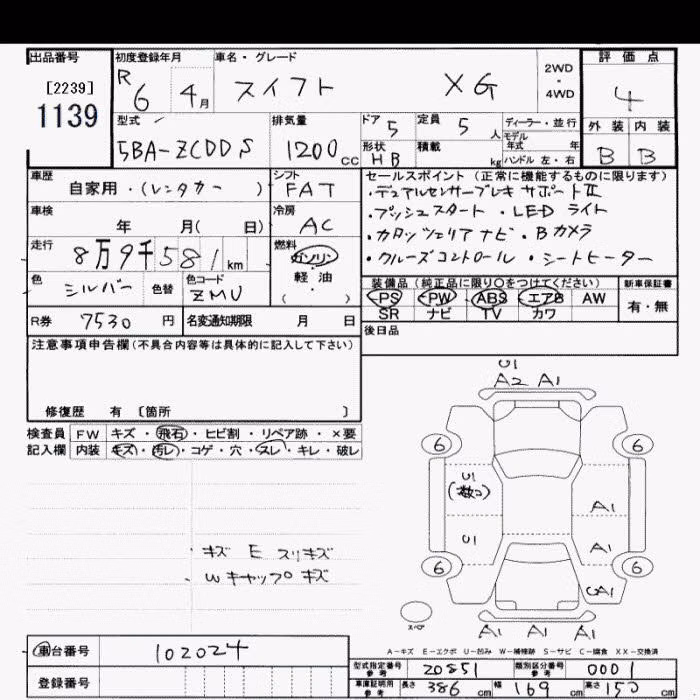 出品番号
[2239]
1139
初度登録年月
R6 4月
車名・グレード
スイフト XG
2WD・4WD
評価点
4
外装 内装
B B
型式
5BA-ZCDDS
排気量
1200cc
ドア 5
定員 5人
ディーラー・並行
モデル年式 年
形状 HB
積載 kg
ハンドル 左・右
車歴
自家用・(レンタカー)
シフト
FAT
車検
年 月( 日)
冷房
AC
走行
8万9千581km
燃料
ガソリン・軽油・( )
色
シルバー
色替
色コード
ZMU
R券 7530円
名変通知期限 月 日
セールスポイント(正常に機能するものに限ります)
・デュアルセンサーブレーキサポートⅡ
・プッシュスタート ・LEDライト
・カロッツェリアナビ ・Bカメラ
・クルーズコントロール ・シートヒーター
装備品(純正品に限り○をつけてください)
PS PW ABS エアB AW
SR ナビ TV カワ
新車保証書
有・無
後日品
注意事項申告欄(不具合内容等は具体的に記入して下さい)
修復歴 有 [箇所 ]
検査員記入欄
FW キズ・飛石・ヒビ割・リペア跡・×要
内装 キズ・汚レ・コゲ・穴・スレ・キレ・破レ
・キズ E スリキズ
・Wキャップキズ
U1
A2 A1
6 6
U1
(数コ)
A1
U1
A1
6 6
CA1
スペア
A1 A1 A1
A-キズ E-エクボ U-凹み W-補修跡 S-サビ C-腐食 XX-交換済
車台番号 102024
登録番号
型式指定番号 参考 20851
類別区分番号 参考 0001
車庫証明用 参考 長さ 386cm 幅 169cm 高さ 150cm